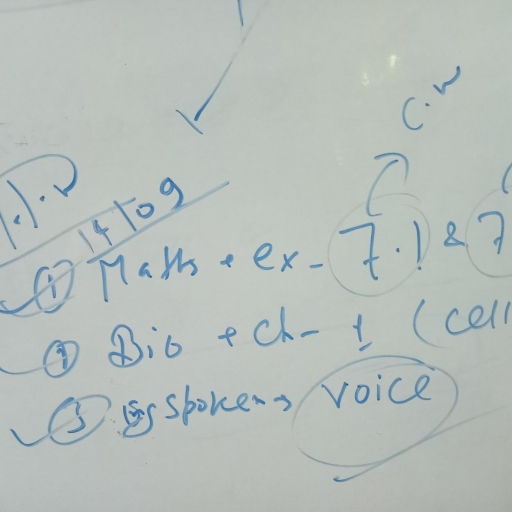 C.W
H.W
14/09
① Maths • ex- 7.1 & 7
② Bio • Ch- 1 (cell
③ Eg spoken → voice